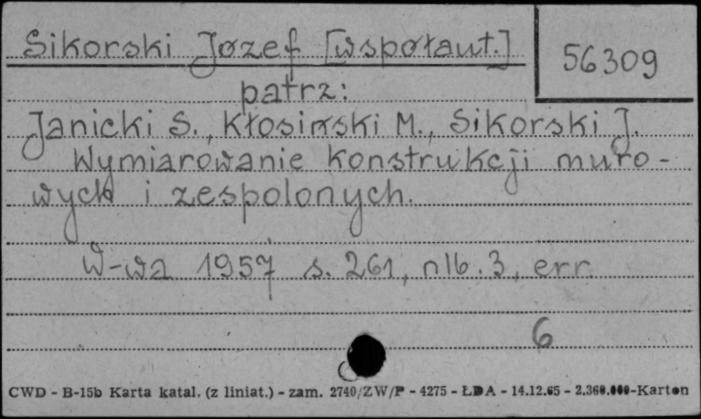 Sikorski Józef [współaut.]
56309
patrz:
Janicki S., Kłosiński M., Sikorski J.
Wymiarowanie konstrukcji muro-
wych i zespolonych.
W-wa 1957 s. 261, nlb. 3, err.
6
CWD - B-15b Karta katal. (z liniat.) - zam. 2740/ZW/P - 4275 - ŁDA - 14.12.65 - 2.360.000-Karton